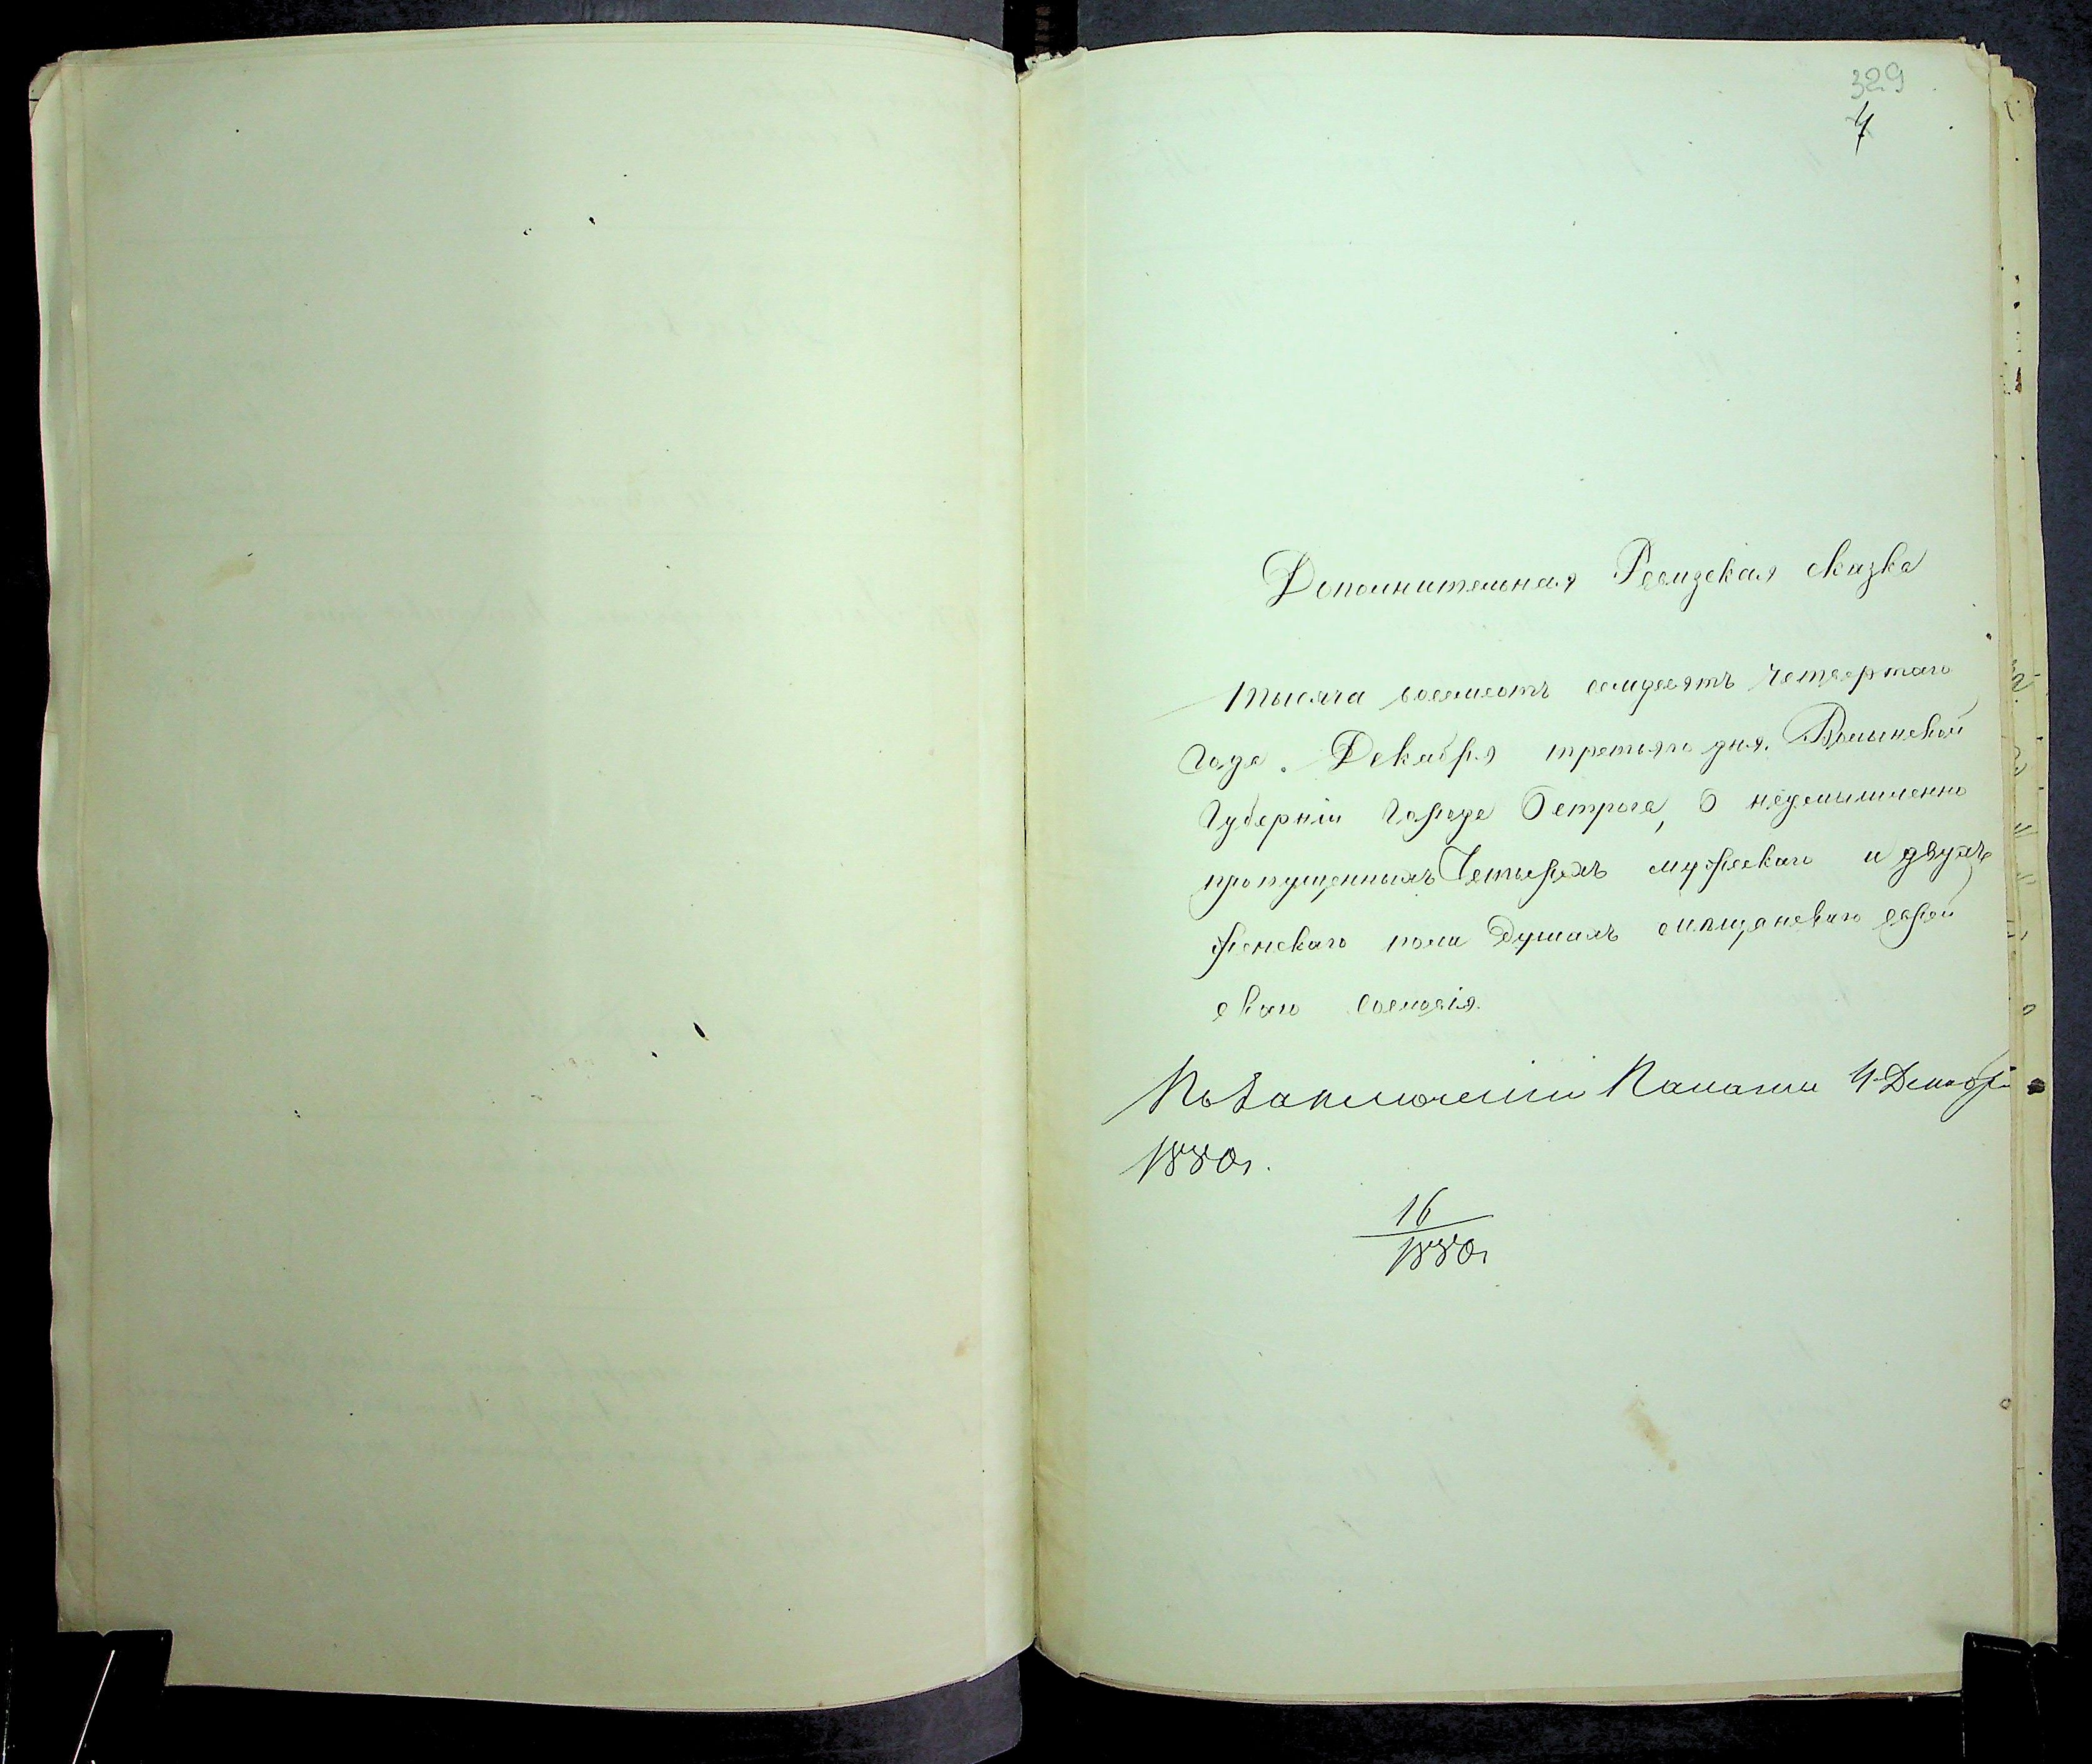 329
7
Дополнительная Ревизская сказка
Тысяча восемсотъ семдесятъ четвертаго
Года. Декабря третьяго дня. Волынской
Губерніи Города Острога, О неумышленно
пропущенныхъ Четырехъ мужескаго и двухъ
женскаго пола душахъ мѣщанскаго еврей
скаго сословія.
По Заключенію Палаты 4 Декабр
1880г.
16
1880г